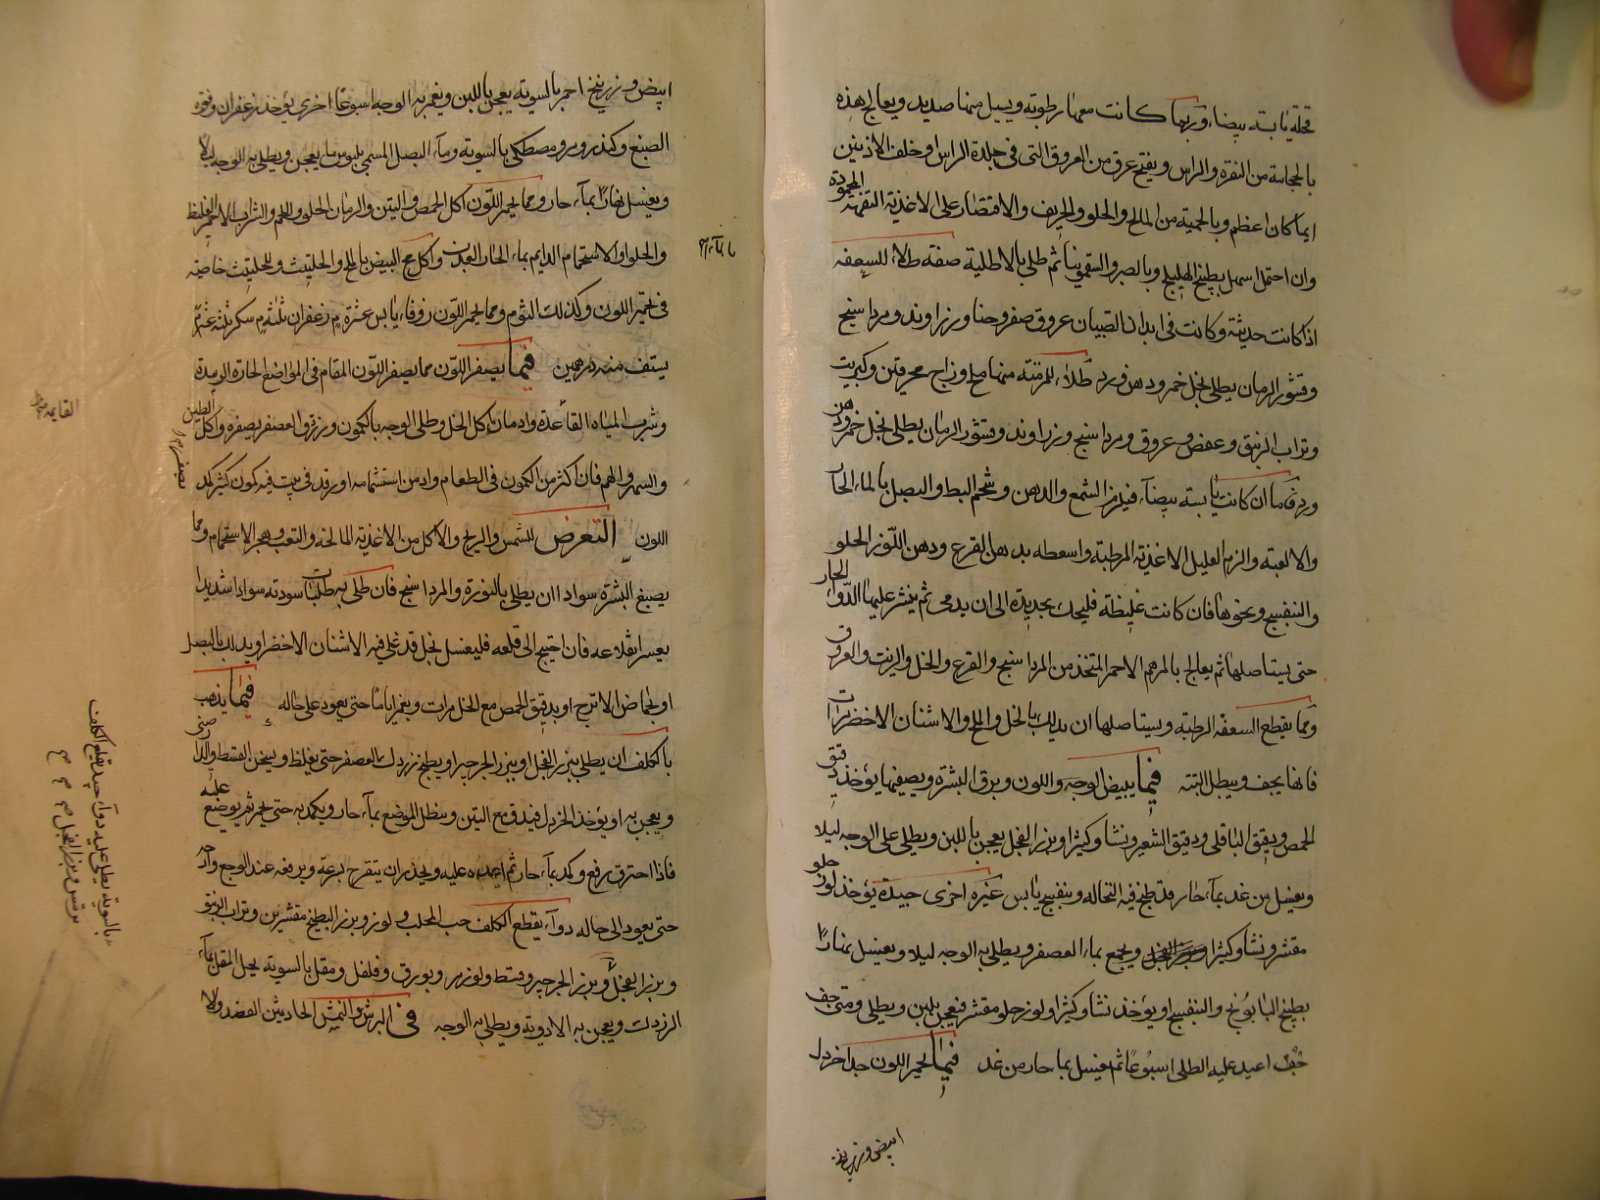 قحلة يابسة بيضاء وربما كانت معها رطوبة ويسيل منها صديد ويعالج هذه
بالحجامة من النقرة والراس ويفتح عرق من العروق التي في جلدة الراس او خلف الاذنين
ايما كان اعظم وبالحمية من المالح والحلو والحريف والاقتصار على الاغذية التفهة المحمودة
وان احتمل اسهل بطبيخ الهليلج وبالصبر والسقمونيا ثم طلي بالاطلية صفة طلاء للسعفه
اذا كانت حديثة وكانت في ابدان الصبيان عروق صفر وحنا وزراوند ومرداسنج
وقشور الرمان يطلى بخل خمر ودهن ورد طلاء للمزمنة منها ملح وزاج محرقتين وكبريت
وتراب الزيبق وعفص وعروق ومرداسنج وزراوند وقشور الرمان يطلى بخل خمر ودهن
ورد فاما ان كانت يابسة بيضاء فيلزم الشمع والدهن وشحم البط والبصل بالماء الحار
والالعبة والزم العليل الاغذية المرطبة واسعطه بدهن القرع ودهن اللوز الحلو
والبنفسج ونحوها فان كانت غليظة فليحك بحديدة الى ان يدمى ثم ينثر عليها الدواء الحار
حتى يستاصلها ثم يعالج بالمرهم الاحمر المتخذ من المرداسنج والقرع والخل والزيت والعروق
ومما يقطع السعفه الرطبة ويستاصلها ان يدلك بالخل والملح والاشنان الاخضر مرات
فانها يجف ويبطل البتة فيما يبيض الوجه واللون ويرق البشرة ويصفيها يؤخذ دقيق
الحمص ودقيق الباقلى ودقيق الشعير ونشا وكثيرا وبزر الفجل يعجن باللبن ويطلى على الوجه ليلا
ويغسل من غد بماء حار قد طبخ فيه النخاله وبنفسج يابس غمره اخرى جيدة يؤخذ لوز حلو
مقشر ونشا وكثيرا ويجمع بماء العصفر ويطلى به الوجه ليلا ويغسل نهارًا
بطبيخ البابونج والبنفسج او يؤخذ نشا وكثيرا ولوز حلو مقشر فيعجن بلبن ويطلى ومتى جف
اعيد عليه الطلى اسبوعا ثم يغسل بما حار من غد فيما يحمر اللون جدا خردل
ابيض وزرنيخ
ابيض وزرنيخ احمر بالسوية يعجن باللبن ويغمر به الوجه اسبوعًا اخرى يؤخذ زعفران وفوه
الصبغ وكندر ومر ومصطكى بالسوية وماء البصل المسمى بلبوس ما يعجن ويطلى به الوجه ليلا
ويغسل نهارًا بماء حار ومما يحمر اللون اكل الحمص والتين والرمان الحلو واللحم والشراب الاحمر الغليظ
والحلو والاستحمام الدايم بماء الحار العذب واكل مح البيض بالملح والحلتيت وللحلتيت خاصية
في تحمير اللون وكذلك الثوم ومما يحمر اللون زوفا يابس عشرة زعفران ثلثة سكر ثلثة عشر
يستف منه درهمين فيما يصفر اللون مما يصفر اللون المقام في المواضع الحارة الومدة
وشرب المياه القاعدة وادمان اكل الخل وطلى الوجه بالكمون وزرق العصفر يصفره واكل الطين
والسهر والهم فان اكثر من الكمون في الطعام وادمن استشمامه او رقد في بيت فيه كمون كثير كمد
اللون التعرض للشمس والريح والاكل من الاغذية المالحة والتعب وهجر الاستحمام ومما
يصبغ البشرة سوادا ان يطلى بالنورة والمرداسنج فان طلى به طلبات سودته سوادا شديدا
يعسر انقلاعه فان احتيج الى قلعه فليغسل بخل قد غلي فيه الاشنان الاخضر او يدلك بالبصل
او بحماض الاترج او بدقيق الحمص مع الخل مرات ويغمر اياما حتى يعود على حاله فيما يذهب
بالكلف ان يطلى ببزر الفجل او ببزر الجرجير او يطبخ زردك العصفر حتى يغلظ ويسحق القسط والدارصيني
ويعجن به او يؤخذ الخردل فيدق مع التين وينطل الموضع بماء حار ويكمد به حتى يحمر ثم يوضع عليه
فاذا احترق رفع وكمد بماء حار ثم اعيد عليه ويحذر ان يتقرح بسرعة ويرفعه عند الوجع
حتى يعود الى حاله دواء يقطع الكلف حب المحلب ولوز وبزر البطيخ مقشرين وتراب الزيبق
وبزر الفجل وبزر الجرجير وقسط ولوز مر وبورق وفلفل ومقل بالسوية يحل المقل بماء
الزردك ويعجن به الادوية ويطلى به الوجه في البرش والنمش الحادثين الفصد ولا
القايمة
بالسوية يطلى عليه دواء جيد يقلع الكلف